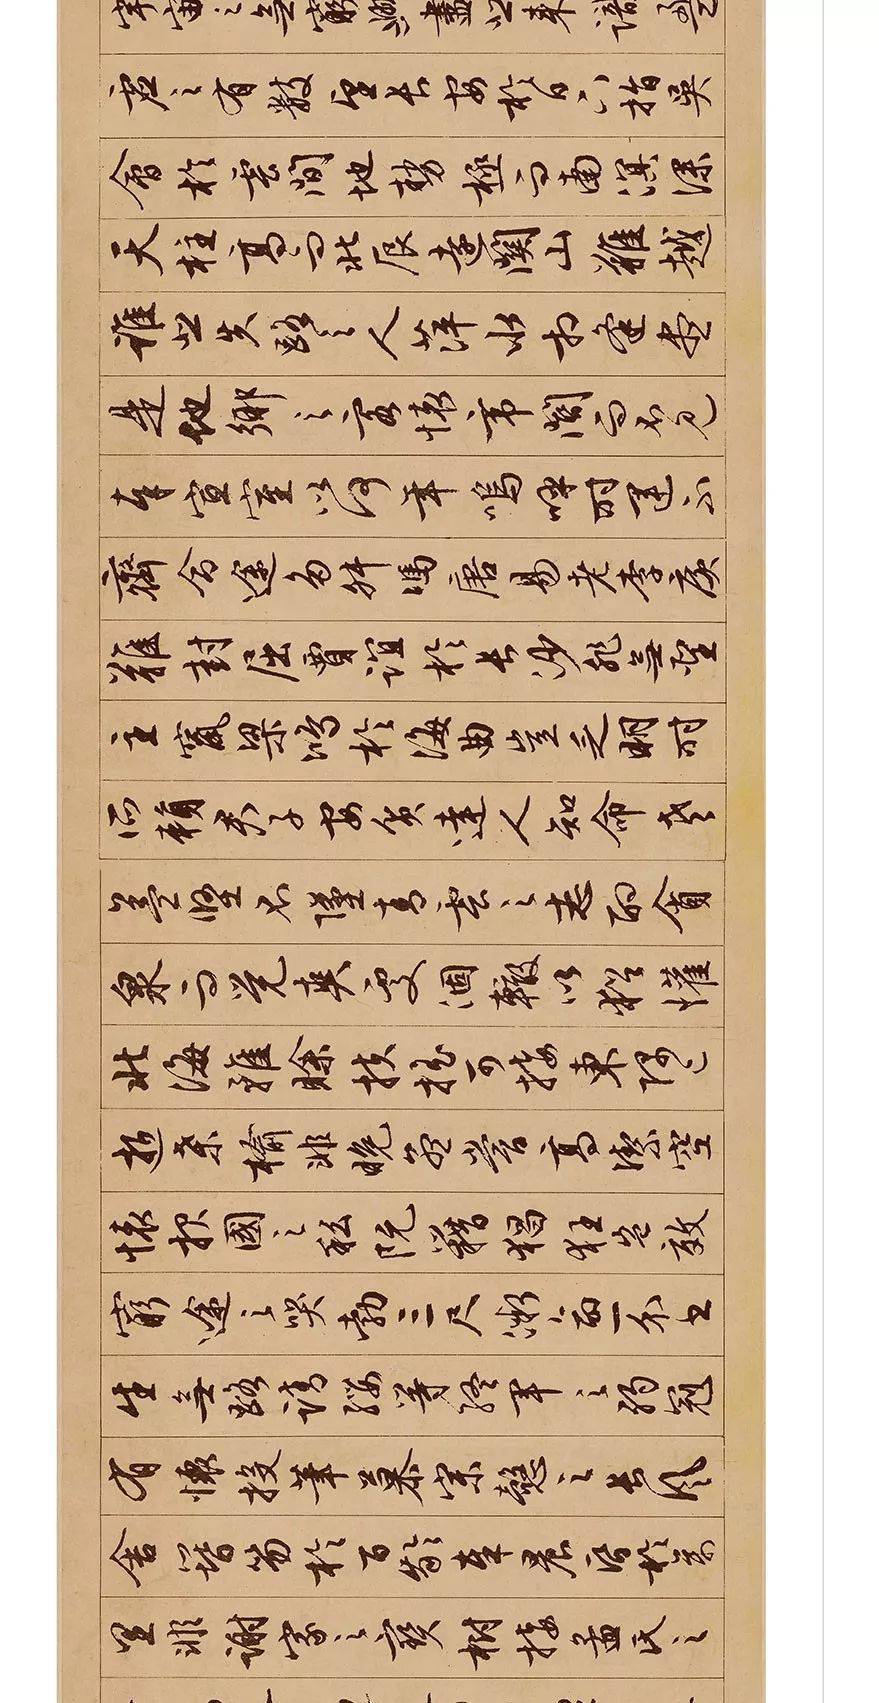 宇宙之無窮興盡悲來識盈
虛之有數望長安於日下指吳
會於雲間地勢極而南溟深
天柱高而北辰遠關山難越
誰悲失路之人萍水相逢盡
是他鄉之客懷帝閽而不見
奉宣室以何年嗚呼時運不
齊命途多舛馮唐易老李廣
難封屈賈誼於長沙非無聖
主竄梁鴻於海曲豈乏明時
所賴君子安貧達人知命老
益堅不墜青雲之志酌貪
泉而覺爽處涸轍以猶懽
北海雖賒扶搖可接東隅已
逝桑榆非晚孟嘗高潔空
懷報國之私阮籍猖狂豈效
窮途之哭勃三尺微命一介書
生無路請纓等終軍之弱冠
有懷投筆慕宗慤之長風
舍簪笏於百齡奉晨昏於萬
里非謝家之寶樹接孟氏之